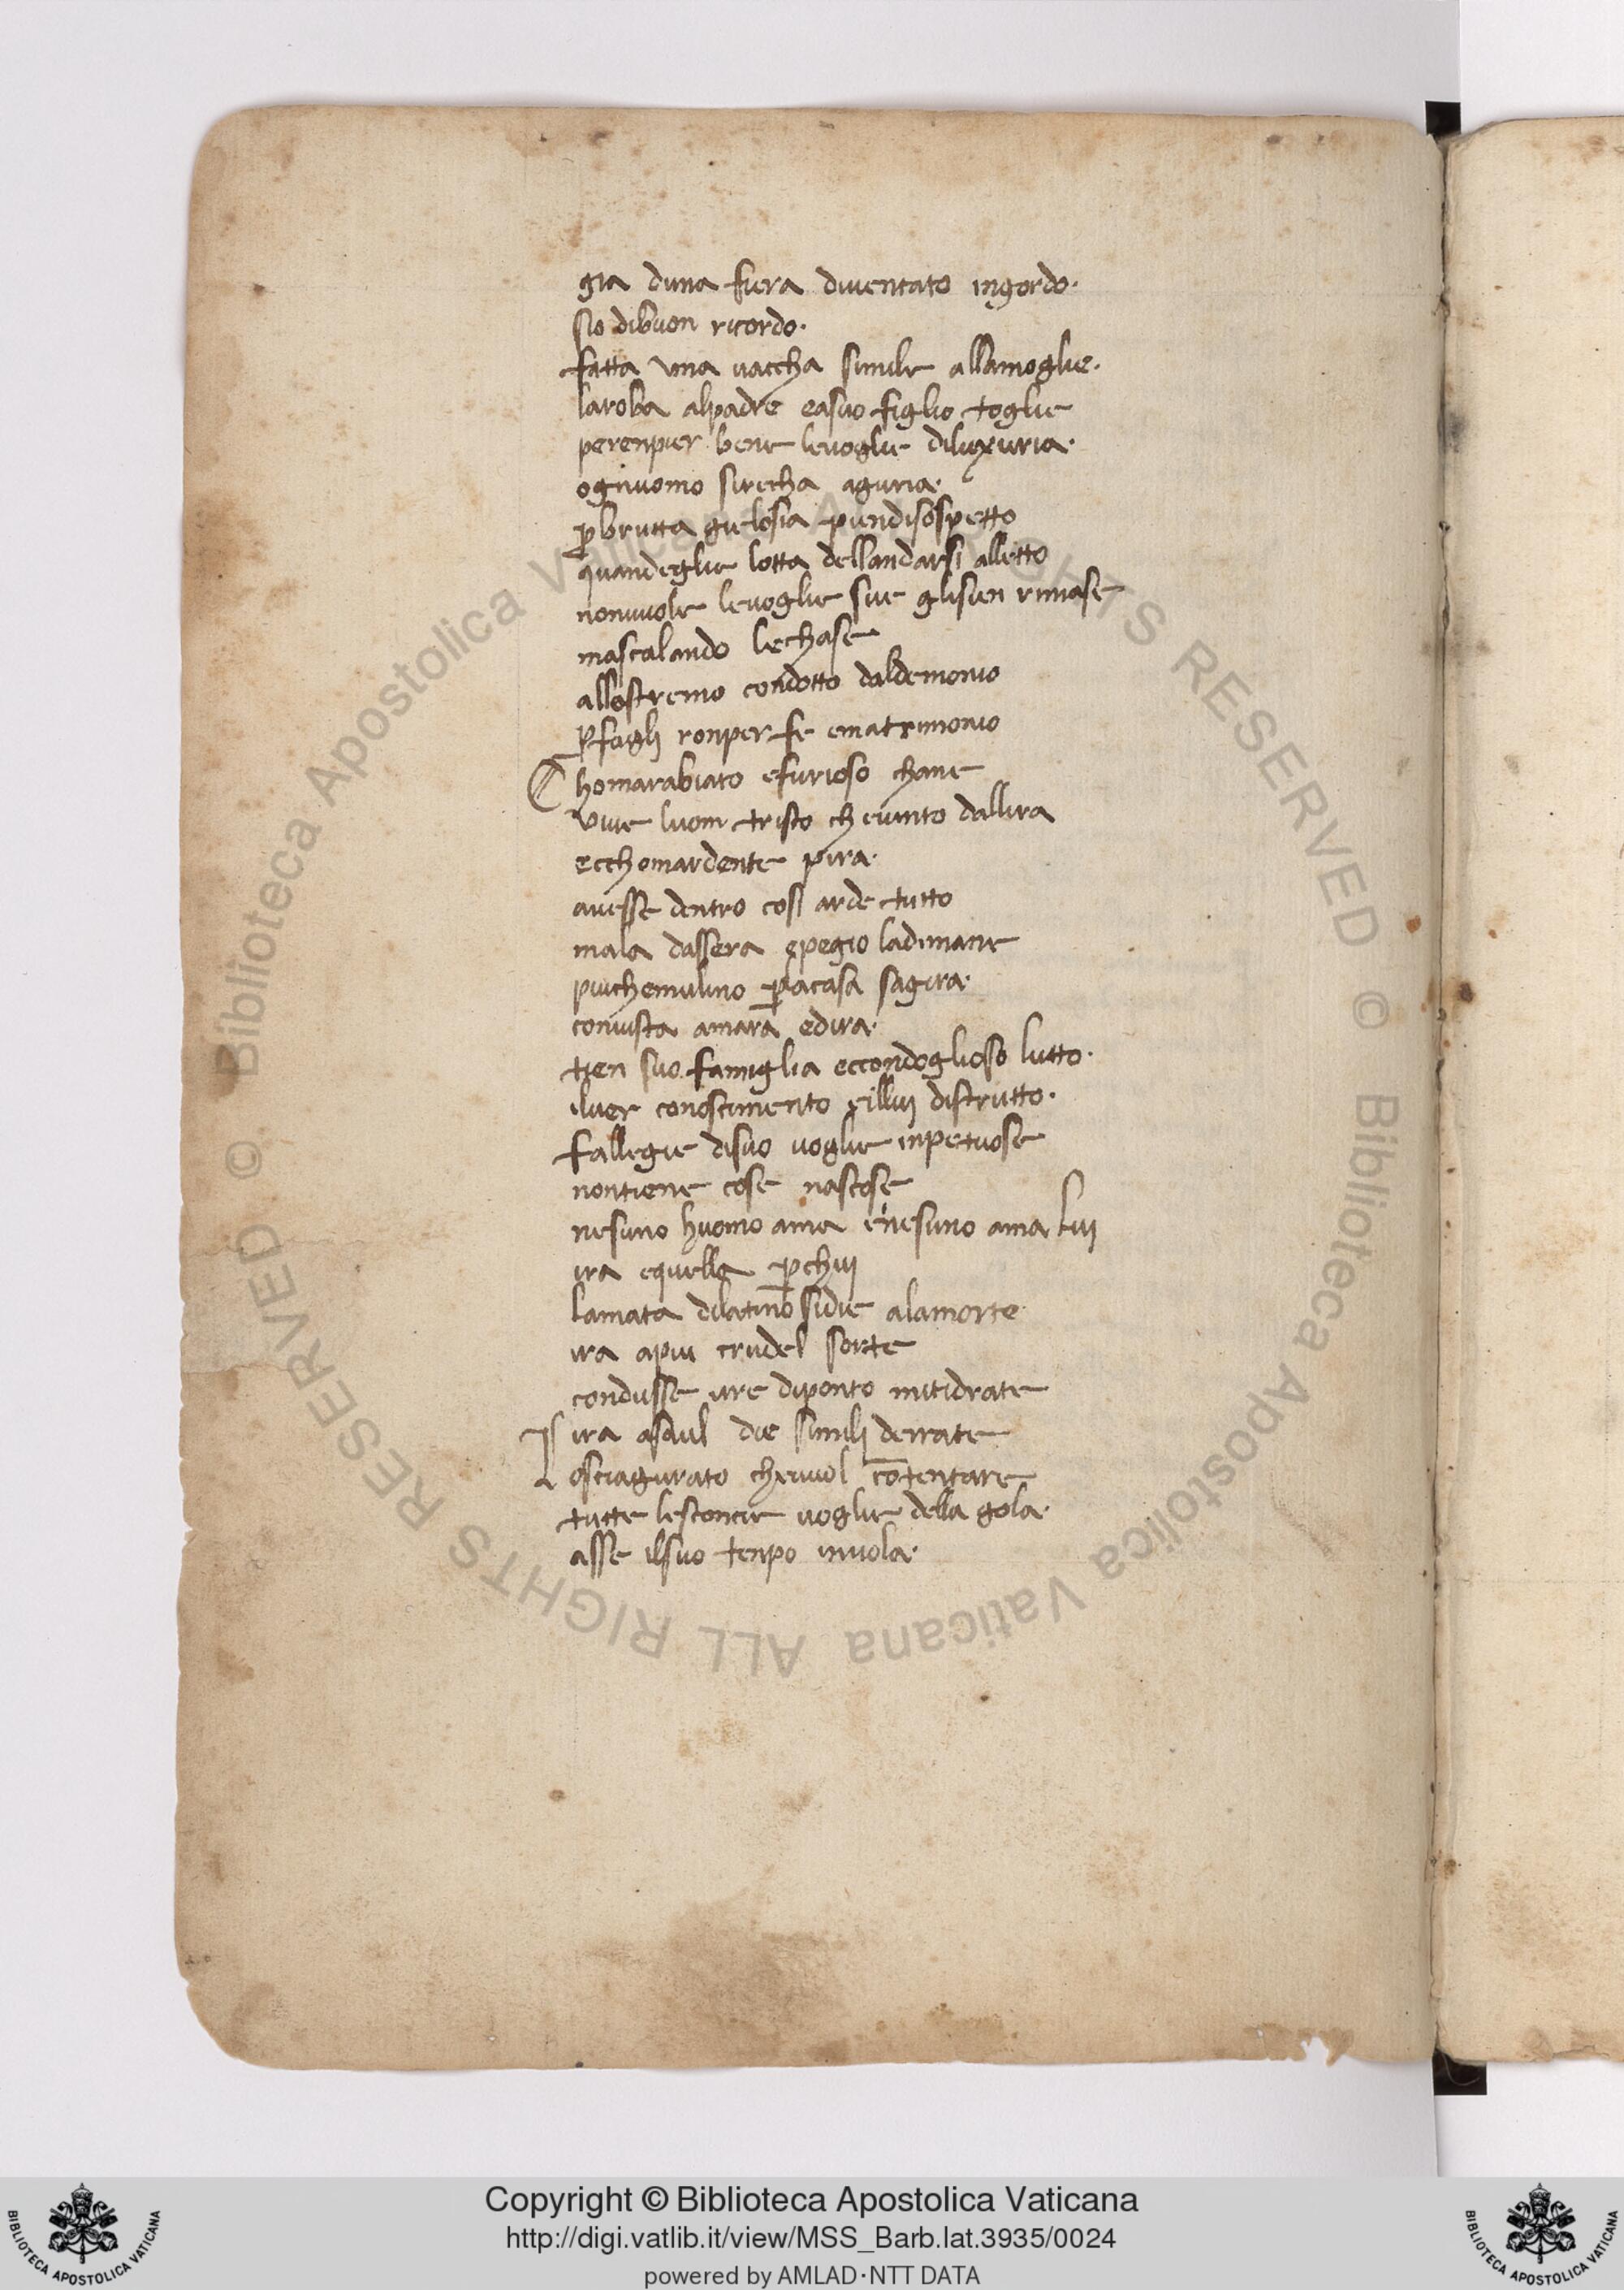 gia duna fiera diuentato ingordo.
sie dibuon ricordo.
fatta una uaccha simile allamoglie.
laroba alpadre easuo figlio toglie
perenpier bene leuoglie diluxuria.
ogniuomo sirecha aguria.
ꝑbrutta gielosia piendisospetto
quandeglie lotta dellandarsi alletto
nonuuole leuoglie sue glisien rimase
mascalando lechase
allostremo condotto daldemonio
ꝑfagli ronper fe ematrimonio
Chomarabiato efurioso chane
uiue luom tristo cheuinto dallira
ecchomardente pira.
auesse dentro cosi arde tutto
mala dassera epegio ladimane
piuchemulino ꝑlacasa sagira.
conuista amara edira.
tien suo famiglia eccondoglioso lutto.
iluer conoscimento eillui distrutto.
fallegie disuo uoglie inpetuose
nontiene cose nascose
nesuno huomo ama enesuno ama lui
ira equella ꝑchui
lamata dilatino sidie alamorte
ira apiu crudel sorte
condusse ilre diponto mitidrate
ira asaul die simili derrate
Losciagurato cheuuol cōtentare
tutte lesconcie uoglie della gola.
asse ilsuo tenpo inuola.
Copyright © Biblioteca Apostolica Vaticana
http://digi.vatlib.it/view/MSS_Barb.lat.3935/0024
powered by AMLAD·NTT DATA
BIBLIOTECA APOSTOLICA VATICANA
BIBLIOTECA APOSTOLICA VATICANA
© Biblioteca Apostolica Vaticana ALL RIGHTS RESERVED © Biblioteca Apostolica Vaticana ALL RIGHTS RESERVED